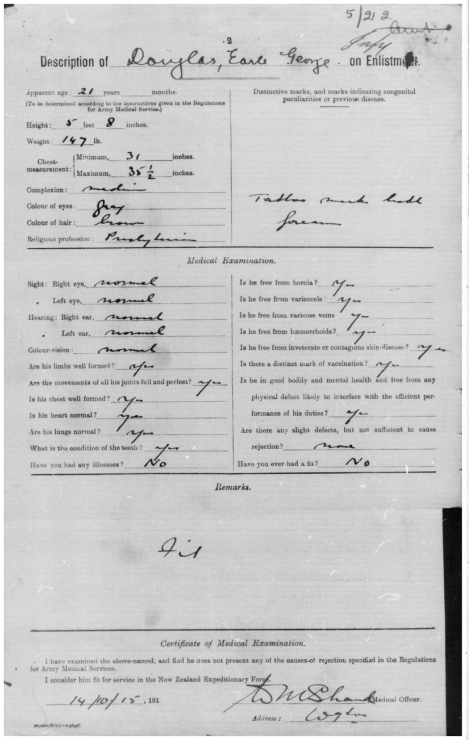 5/212
3
Description of Douglas, Earle George on Enlistment.
Apparent age: 21 years months.
(To be determined according to the instructions given in the Regulations
for Army Medical Service.)
Height: 5 feet 8 inches.
Weight: 147 lb.
Chest-measurement: Minimum, 31 inches.
Maximum, 35 1/2 inches.
Complexion: medium
Colour of eyes: gray
Colour of hair: brown
Religious profession: Presbyterian
Distinctive marks, and marks indicating congenital
peculiarities or previous disease.
Tattoo mark both
forearm
Medical Examination.
Sight: Right eye, normal
" Left eye, normal
Hearing: Right ear, normal
" Left ear, normal
Colour-vision: normal
Are his limbs well formed? yes
Are the movements of all his joints full and perfect? yes
Is his chest well formed? yes
Is his heart normal? yes
Are his lungs normal? yes
What is the condition of the teeth? yes
Have you had any illnesses? No
Is he free from hernia? yes
Is he free from varicocele? yes
Is he free from varicose veins? yes
Is he free from hæmorrhoids? yes
Is he free from inveterate or contagious skin-disease? yes
Is there a distinct mark of vaccination? yes
Is he in good bodily and mental health and free from any
physical defect likely to interfere with the efficient per-
formance of his duties? yes
Are there any slight defects, but not sufficient to cause
rejection? none
Have you ever had a fit? No
Remarks.
Fit
Certificate of Medical Examination.
I have examined the above-named, and find he does not present any of the causes of rejection specified in the Regulations
for Army Medical Services.
I consider him fit for service in the New Zealand Expeditionary Force.
14/10/15, 191
Medical Officer.
Address: Wgtn